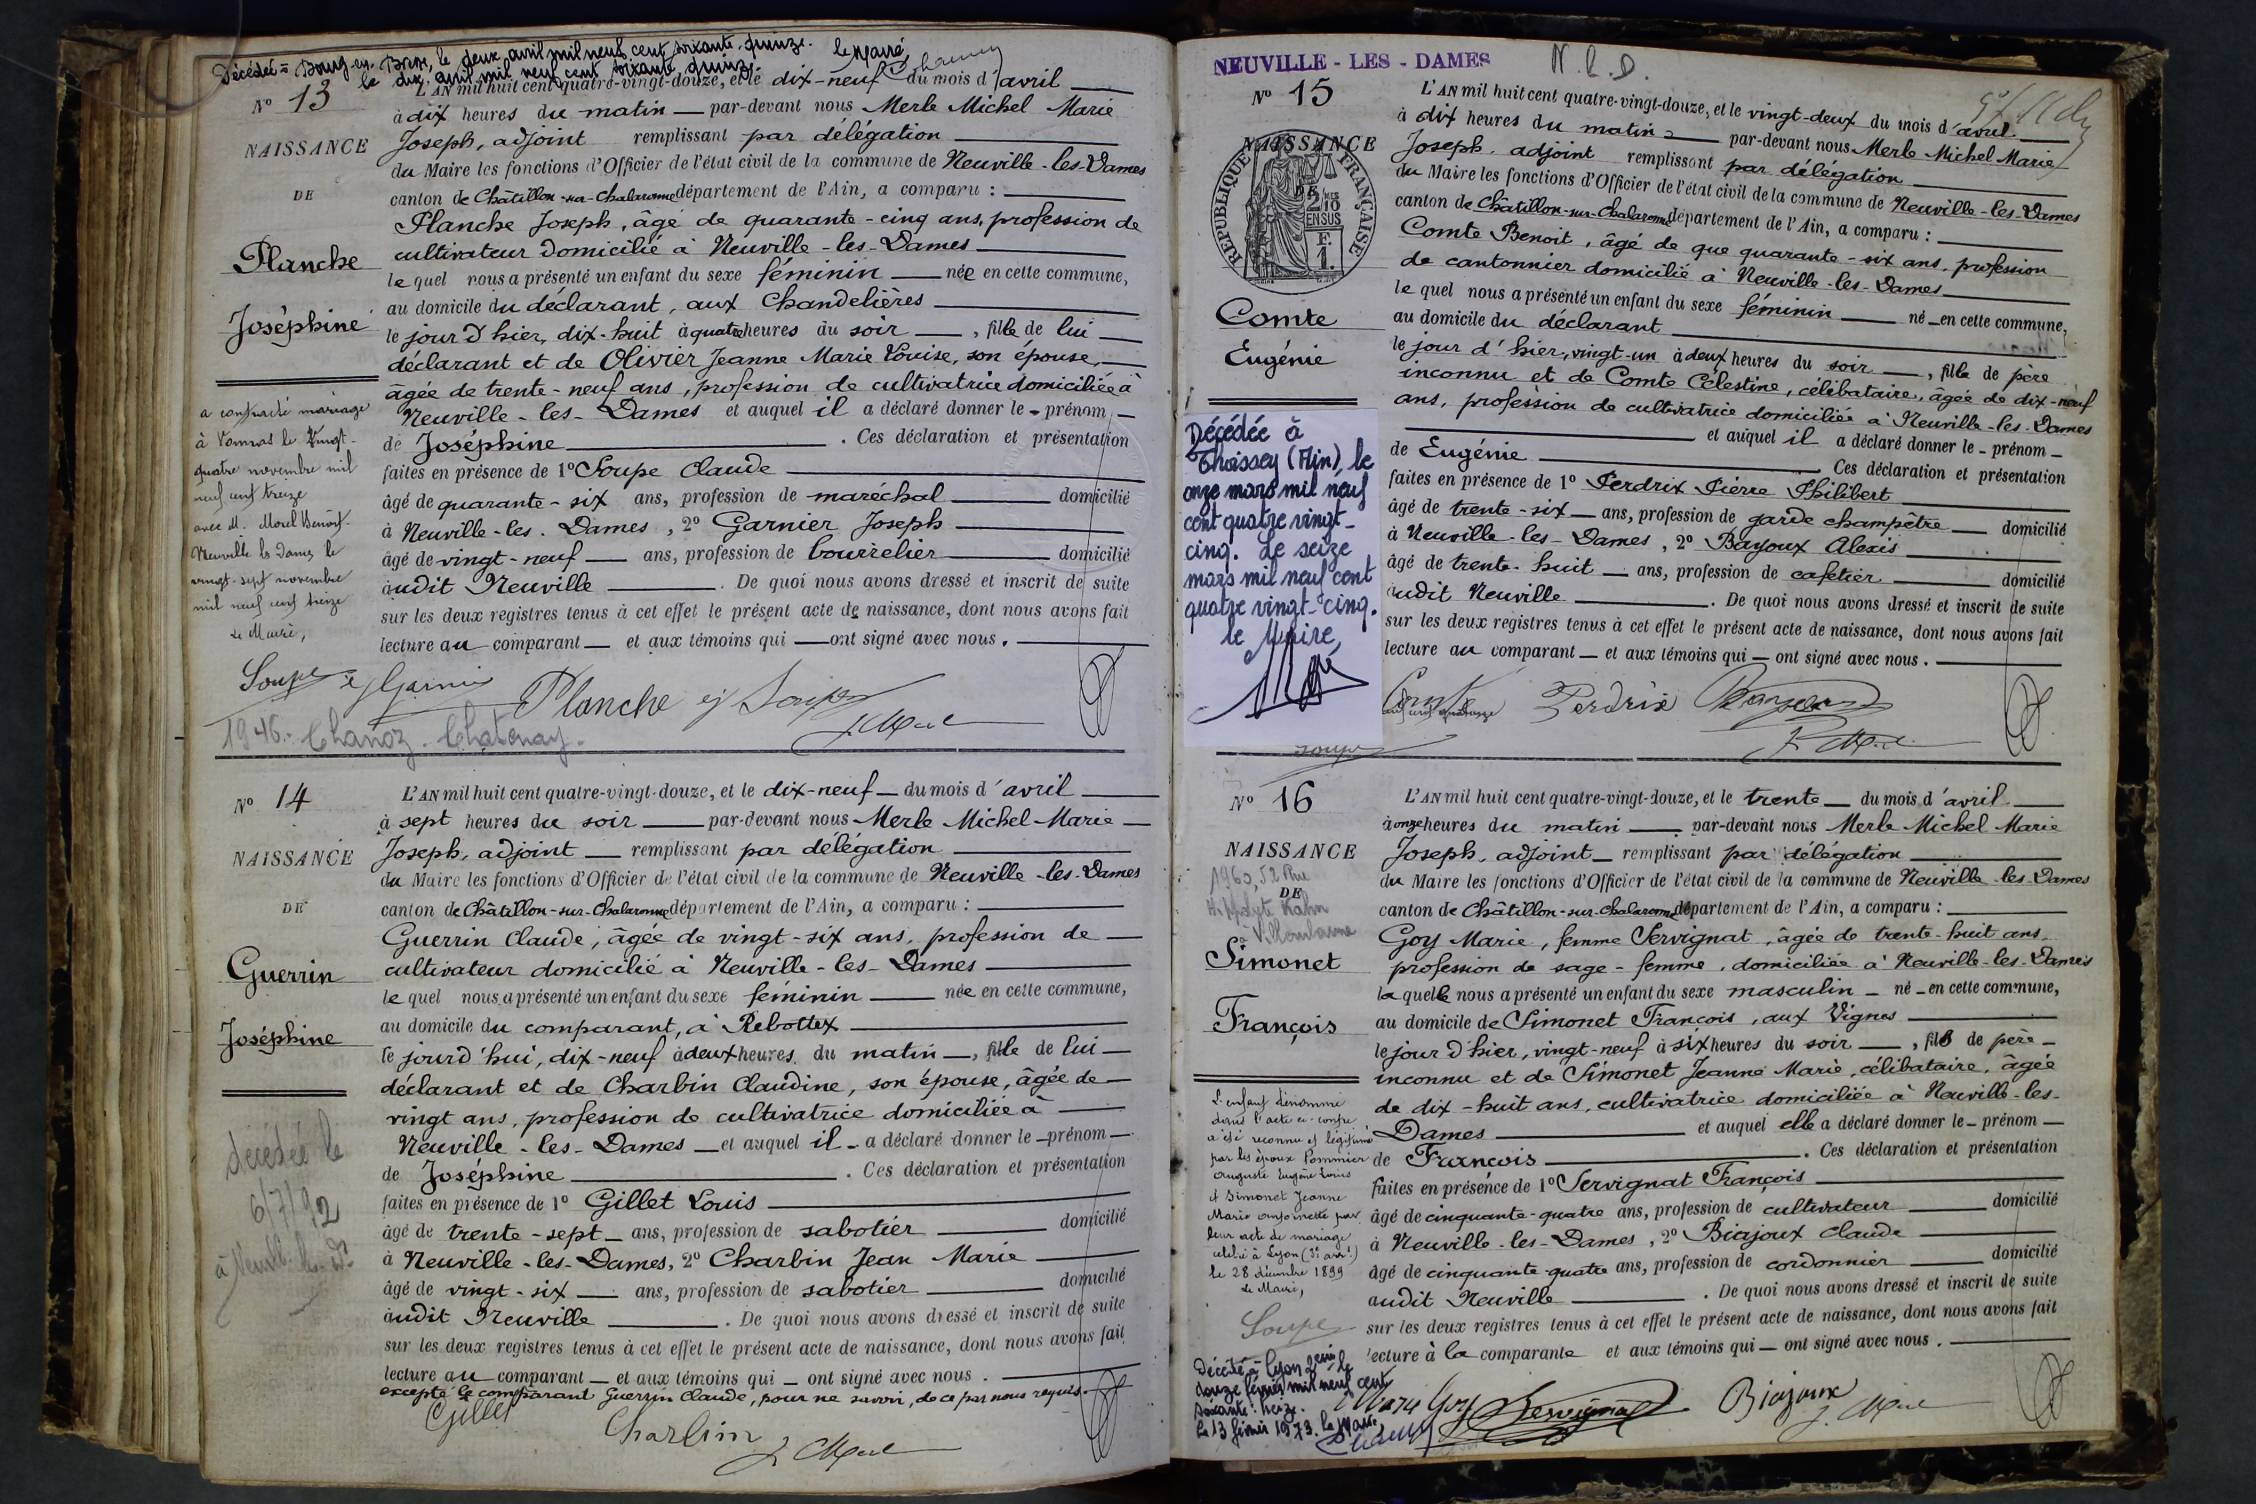 Décédée à Bourg-en-Bresse, le deux avril mil neuf cent soixante-quinze.
le dix avril mil neuf cent soixante quinze. le Maire,
N° 13
NAISSANCE
DE
Planche
Joséphine
a contracté mariage
à Vonnas le vingt-
quatre novembre mil
neuf cent treize
avec M. Morel Benoît.
Neuville les Dames le
vingt-sept novembre
mil neuf cent treize
Le Maire,
L'AN mil huit cent quatre-vingt-douze, et le dix-neuf du mois d'avril
à dix heures du matin par-devant nous Merle Michel Marie
Joseph, adjoint remplissant par délégation
du Maire les fonctions d'Officier de l'état civil de la commune de Neuville-les-Dames
canton de Châtillon-sur-Chalaronne département de l'Ain, a comparu :
Planche Joseph, âgé de quarante-cinq ans, profession de
cultivateur domicilié à Neuville-les-Dames
lequel nous a présenté un enfant du sexe féminin née en cette commune,
au domicile du déclarant, aux Chandelières
le jour d'hier, dix-huit à quatre heures du soir, fille de lui
déclarant et de Olivier Jeanne Marie Louise, son épouse,
âgée de trente-neuf ans, profession de cultivatrice domiciliée à
Neuville-les-Dames et auquel il a déclaré donner le prénom
de Joséphine. Ces déclaration et présentation
faites en présence de 1° Soupe Claude
âgé de quarante-six ans, profession de maréchal domicilié
à Neuville-les-Dames, 2° Garnier Joseph
âgé de vingt-neuf ans, profession de bourrelier domicilié
audit Neuville. De quoi nous avons dressé et inscrit de suite
sur les deux registres tenus à cet effet le présent acte de naissance, dont nous avons fait
lecture au comparant et aux témoins qui ont signé avec nous.
Soupe Garnier Planche J. Merle
1946. Chanoz-Chatenay.
N° 14
NAISSANCE
DE
Guerrin
Joséphine
décédée le
6/7/92
à Neuv. les Ds
L'AN mil huit cent quatre-vingt-douze, et le dix-neuf du mois d'avril
à sept heures du soir par-devant nous Merle Michel Marie
Joseph, adjoint remplissant par délégation
du Maire les fonctions d'Officier de l'état civil de la commune de Neuville-les-Dames
canton de Châtillon-sur-Chalaronne département de l'Ain, a comparu :
Guerrin Claude, âgée de vingt-six ans, profession de
cultivateur domicilié à Neuville-les-Dames
lequel nous a présenté un enfant du sexe féminin née en cette commune,
au domicile du comparant, à Rebottex
le jour d'hui, dix-neuf à deux heures du matin, fille de lui
déclarant et de Charbin Claudine, son épouse, âgée de
vingt ans, profession de cultivatrice domiciliée à
Neuville-les-Dames et auquel il a déclaré donner le prénom
de Joséphine. Ces déclaration et présentation
faites en présence de 1° Gillet Louis
âgé de trente-sept ans, profession de sabotier domicilié
à Neuville-les-Dames, 2° Charbin Jean Marie
âgé de vingt-six ans, profession de sabotier domicilié
audit Neuville. De quoi nous avons dressé et inscrit de suite
sur les deux registres tenus à cet effet le présent acte de naissance, dont nous avons fait
lecture au comparant et aux témoins qui ont signé avec nous.
excepté le comparant Guerrin Claude, pour ne savoir, de ce par nous requis.
Gillet Charbin J. Merle
NEUVILLE-LES-DAMES
N.L.D.
N° 15
NAISSANCE
DE
REPUBLIQUE FRANÇAISE
Comte
Eugénie
Décédée à
Thoissey (Ain), le
onze mars mil neuf
cent quatre vingt-
cinq. Le seize
mars mil neuf cent
quatre vingt-cinq.
le Maire,
L'AN mil huit cent quatre-vingt-douze, et le vingt-deux du mois d'avril
à dix heures du matin par-devant nous Merle Michel Marie
Joseph, adjoint remplissant par délégation
du Maire les fonctions d'Officier de l'état civil de la commune de Neuville-les-Dames
canton de Châtillon-sur-Chalaronne département de l'Ain, a comparu :
Comte Benoit, âgé de que quarante-six ans, profession
de cantonnier domicilié à Neuville-les-Dames
lequel nous a présenté un enfant du sexe féminin né en cette commune,
au domicile du déclarant
le jour d'hier, vingt-un à deux heures du soir, fille de père
inconnu et de Comte Célestine, célibataire, âgée de dix-neuf
ans, profession de cultivatrice domiciliée à Neuville-les-Dames
et auquel il a déclaré donner le prénom
de Eugénie Ces déclaration et présentation
faites en présence de 1° Perdrix Pierre Philibert
âgé de trente-six ans, profession de garde champêtre domicilié
à Neuville-les-Dames, 2° Bayoux Alexis
âgé de trente-huit ans, profession de cafetier domicilié
audit Neuville. De quoi nous avons dressé et inscrit de suite
sur les deux registres tenus à cet effet le présent acte de naissance, dont nous avons fait
lecture au comparant et aux témoins qui ont signé avec nous.
Comte Perdrix Bayoux
J. Merle
N° 16
NAISSANCE
1960, 52 Rue
DE
Hippolyte Kahn
à Villeurbanne
Simonet
François
L'enfant dénommé
dans l'acte ci-contre
a été reconnu et légitimé
par les époux Pommier
Auguste Eugène Louis
et Simonet Jeanne
Marie Antoinette par
leur acte de mariage
célébré à Lyon (3e arrt)
le 28 décembre 1899
Le Maire,
Soupe
Décédé à Lyon 2ème le
douze février mil neuf cent
soixante-treize.
Le 13 février 1973. le Maire,
L'AN mil huit cent quatre-vingt-douze, et le trente du mois d'avril
à onze heures du matin par-devant nous Merle Michel Marie
Joseph, adjoint remplissant par délégation
du Maire les fonctions d'Officier de l'état civil de la commune de Neuville-les-Dames
canton de Châtillon-sur-Chalaronne département de l'Ain, a comparu :
Goy Marie, femme Servignat, âgée de trente-huit ans,
profession de sage-femme, domiciliée à Neuville-les-Dames
laquelle nous a présenté un enfant du sexe masculin né en cette commune,
au domicile de Simonet François, aux Vignes
le jour d'hier, vingt-neuf à six heures du soir, fils de père
inconnu et de Simonet Jeanne Marie, célibataire, âgée
de dix-huit ans, cultivatrice domiciliée à Neuville-les-
Dames et auquel elle a déclaré donner le prénom
de François. Ces déclaration et présentation
faites en présence de 1° Servignat François
âgé de cinquante-quatre ans, profession de cultivateur domicilié
à Neuville-les-Dames, 2° Biajoux Claude
âgé de cinquante-quatre ans, profession de cordonnier domicilié
audit Neuville. De quoi nous avons dressé et inscrit de suite
sur les deux registres tenus à cet effet le présent acte de naissance, dont nous avons fait
lecture à la comparante et aux témoins qui ont signé avec nous.
Marie Goy Servignat Biajoux J. Merle